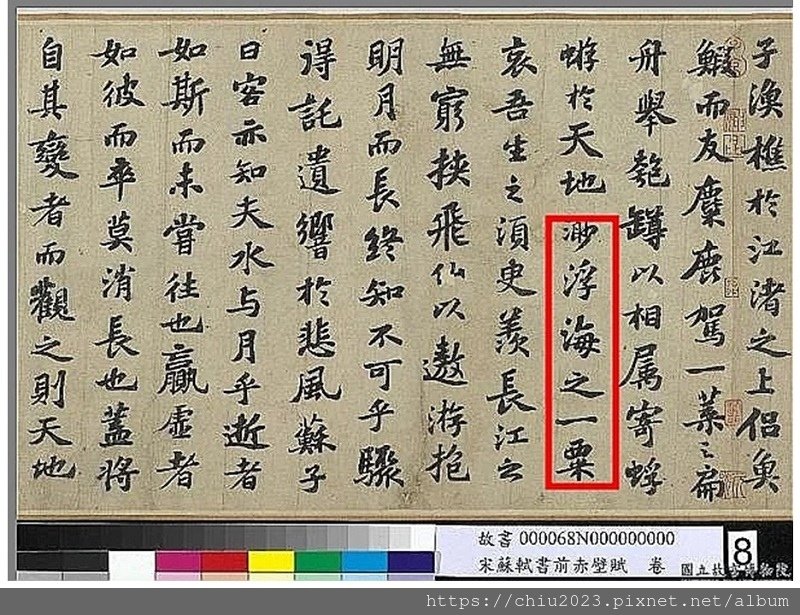 子漁樵於江渚之上侶魚
鰕而友麋鹿駕一葉之扁
舟舉匏罇以相属寄蜉
蝣於天地渺浮海之一粟
哀吾生之須臾羨長江之
無窮挟飛仙以遨游抱
明月而長終知不可乎驟
得託遺響於悲風蘇子
曰客亦知夫水与月乎逝者
如斯而未嘗往也贏虛者
如彼而卒莫消長也蓋將
自其變者而觀之則天地
故書 000068N000000000
宋蘇軾書前赤壁賦 卷
8
國立故宮博物院
https://chiu2023.pixnet.net/album